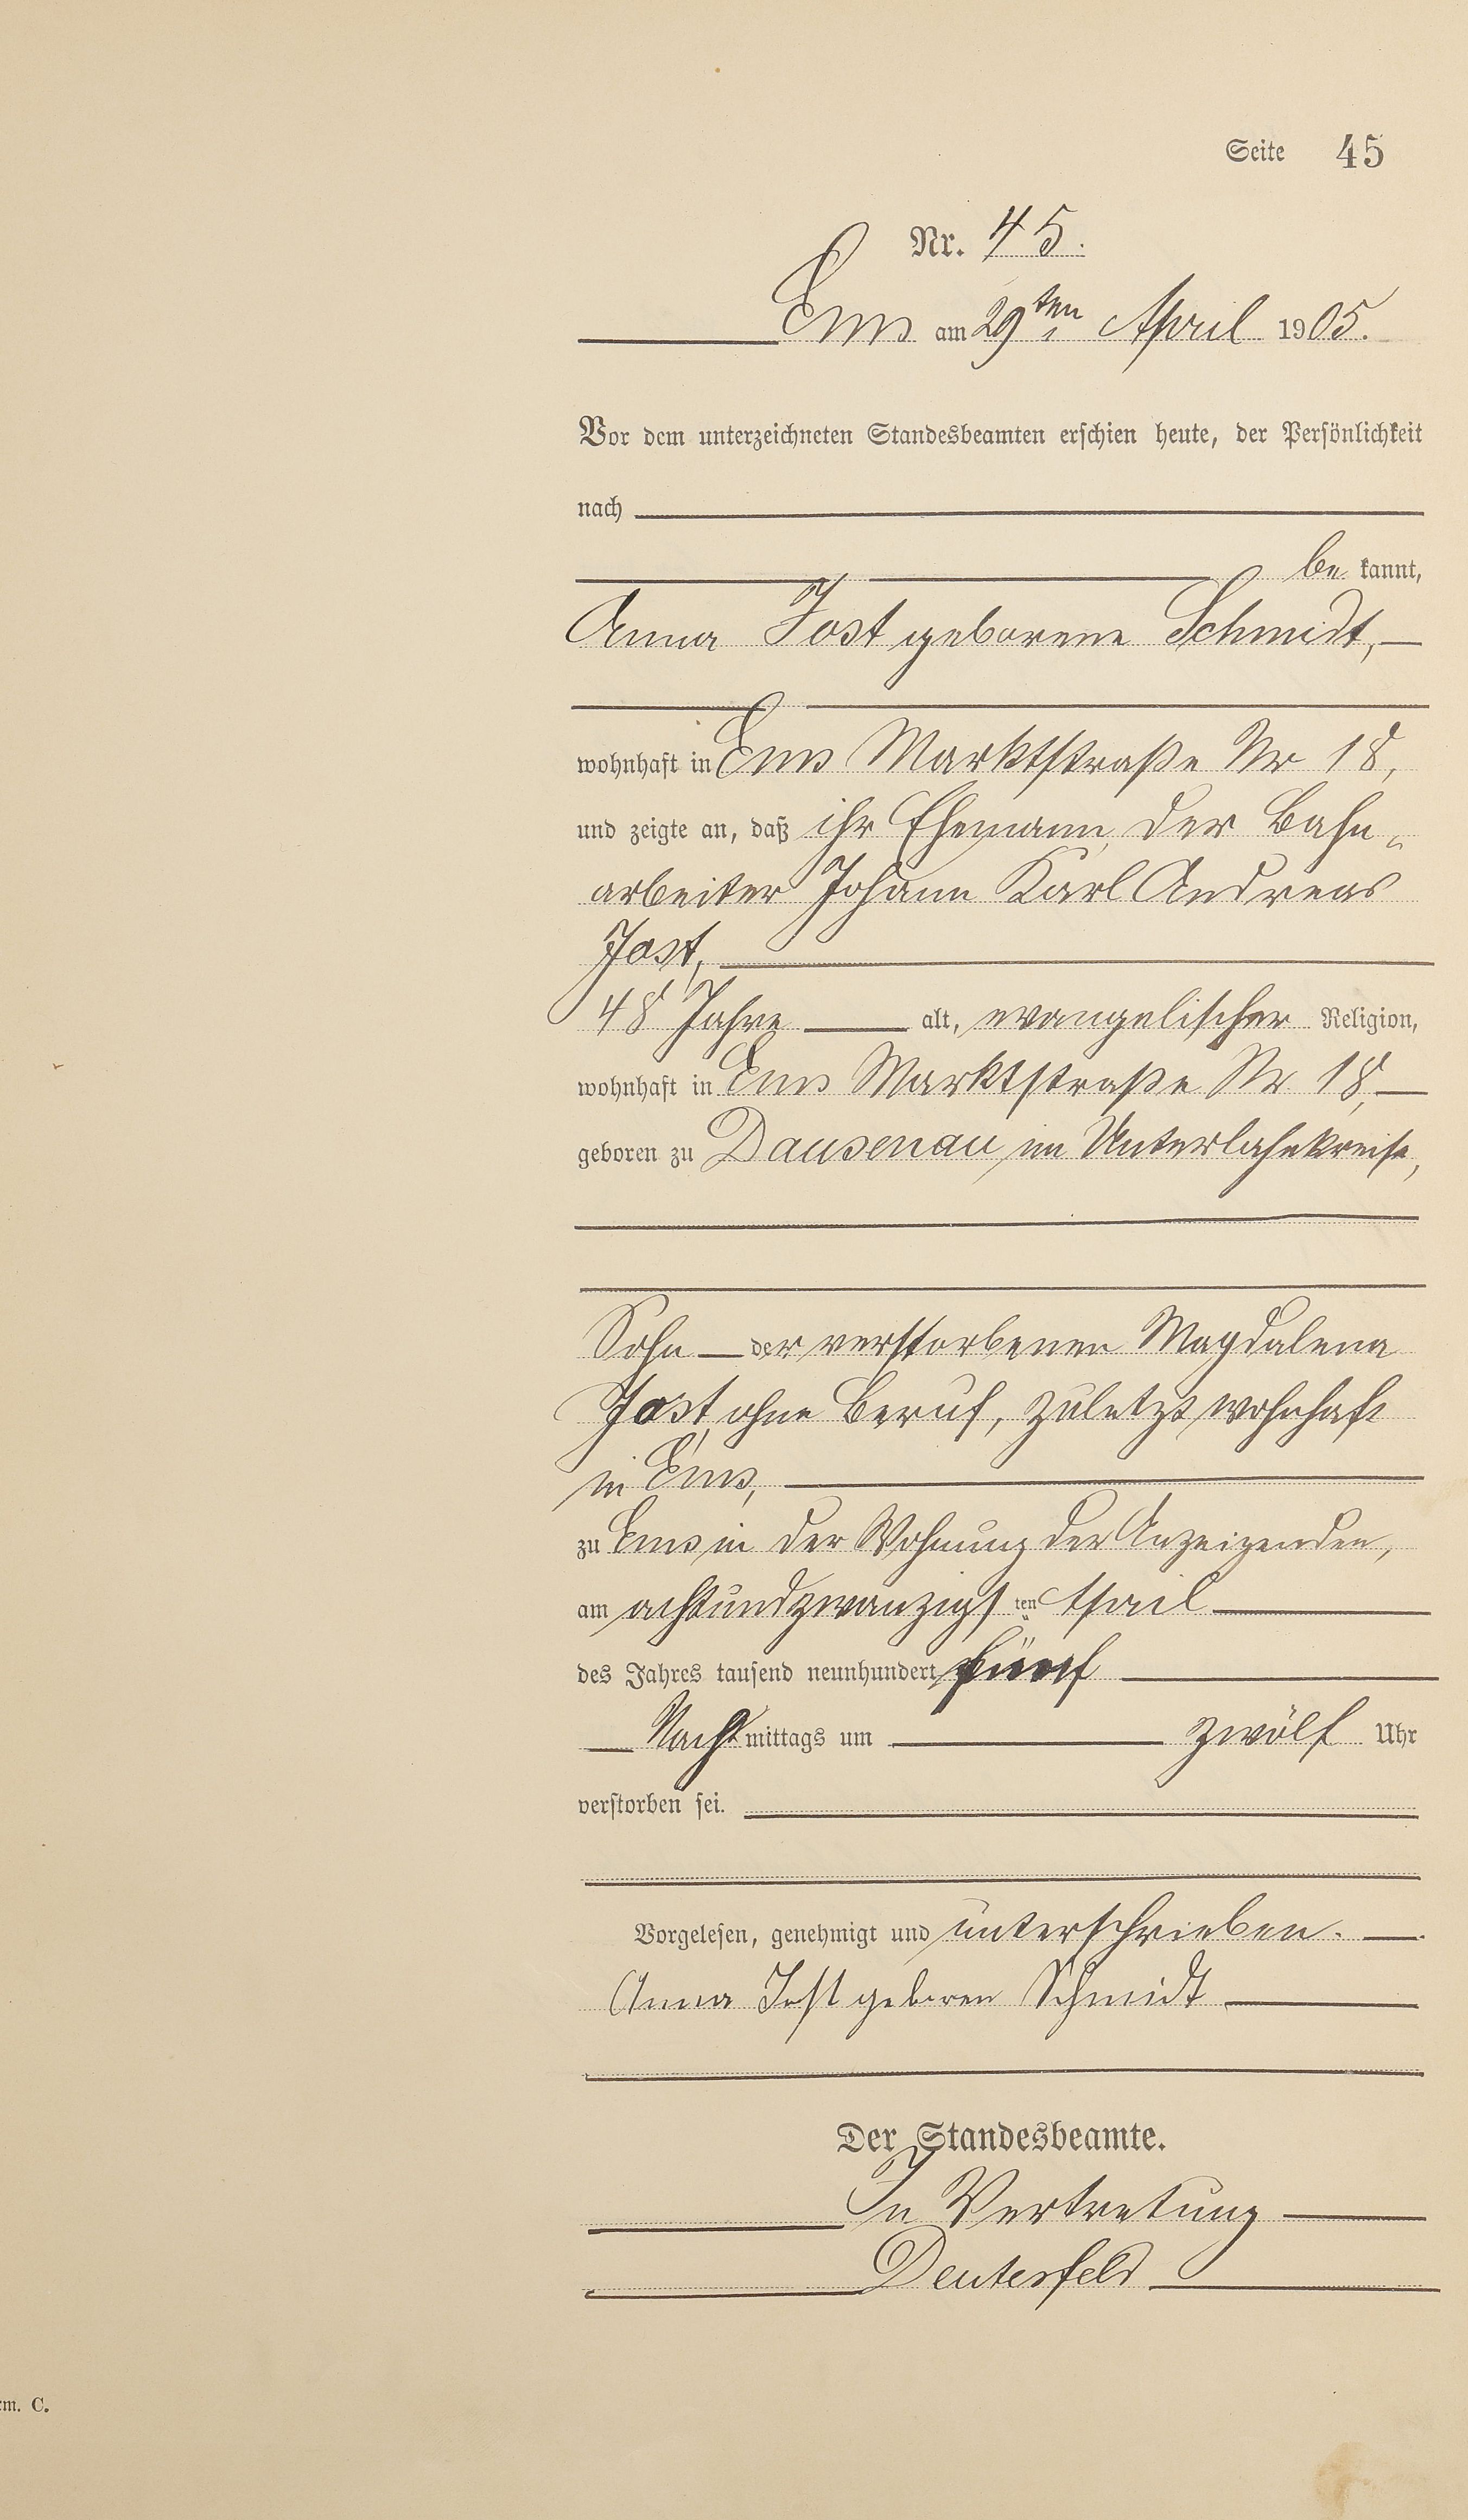 Seite 45
Nr. 45.
Ems am 29ten April 1905.
Vor dem unterzeichneten Standesbeamten erschien heute, der Persönlichkeit
nach
be kannt,
Anna Jost geborene Schmidt,
wohnhaft in Ems Marktstraße Nr 18,
und zeigte an, daß ihr Ehemann, der Bahn-
arbeiter Johann Karl Andreas
Jost,
48 Jahre alt, evangelischer Religion,
wohnhaft in Ems Marktstraße Nr 18,
geboren zu Dausenau im Unterlahnkreise,
Sohn der verstorbenen Magdalena
Jost, ohne Beruf, zuletzt wohnhaft
in Ems,
zu Ems in der Wohnung der Anzeigenden,
am achtundzwanzigsten April
des Jahres tausend neunhundert fünf
Nachmittags um zwölf Uhr
verstorben sei.
Vorgelesen, genehmigt und unterschrieben.
Anna Jost geboren Schmidt
Der Standesbeamte.
In Vertretung
Deutesfeld
rm. C.